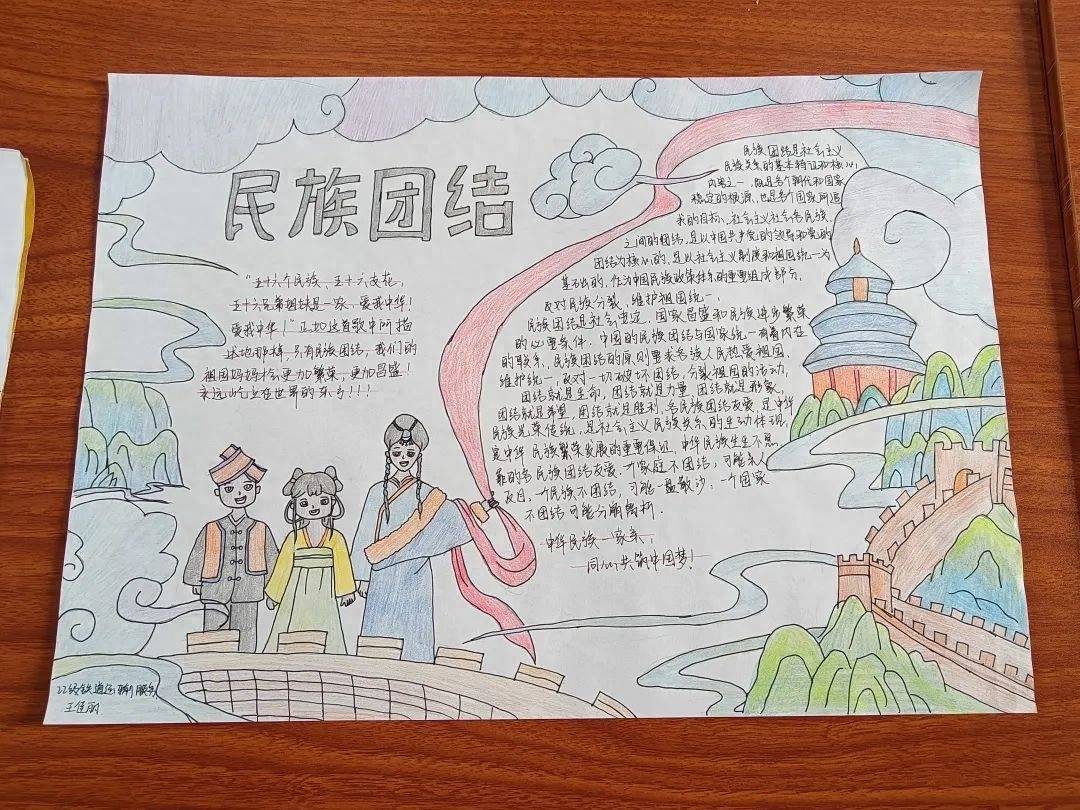 民族团结
"五十六个民族,五十六支花,
五十六兄弟姐妹是一家,爱我中华!
爱我中华!"正如这首歌中所描
述地那样,只有民族团结,我们的
祖国妈妈才会更加繁荣,更加昌盛!
永远屹立在世界的东方!!!
民族团结是社会主义
民族关系的基本特征和核心
内容之一,既是各个朝代和国家
稳定的根源,也是各个国家所追
求的目标,社会主义社会各民族
之间的团结,是以中国共产党的领导和党的
团结为核心的,是以社会主义制度和祖国统一为
基础的,作为中国民族政策体系的重要组成部分,
反对民族分裂,维护祖国统一,
民族团结是社会安定、国家昌盛和民族进步繁荣
的必要条件.中国的民族团结与国家统一有着内在
的联系,民族团结的原则要求各族人民热爱祖国,
维护统一,反对一切破坏团结,分裂祖国的活动,
团结就是生命,团结就是力量,团结就是形象,
团结就是希望,团结就是胜利,各民族团结友爱,是中华
民族光荣传统,是社会主义民族关系的生动体现,
是中华民族繁荣发展的重要保证,中华民族生生不息
靠的各民族团结友爱.一个家庭不团结,可能亲人
反目,一个民族不团结,可能一盘散沙;一个国家
不团结可能分崩离析.
中华民族一家亲,
同心共筑中国梦!
22级铁道运输服务
王佳丽